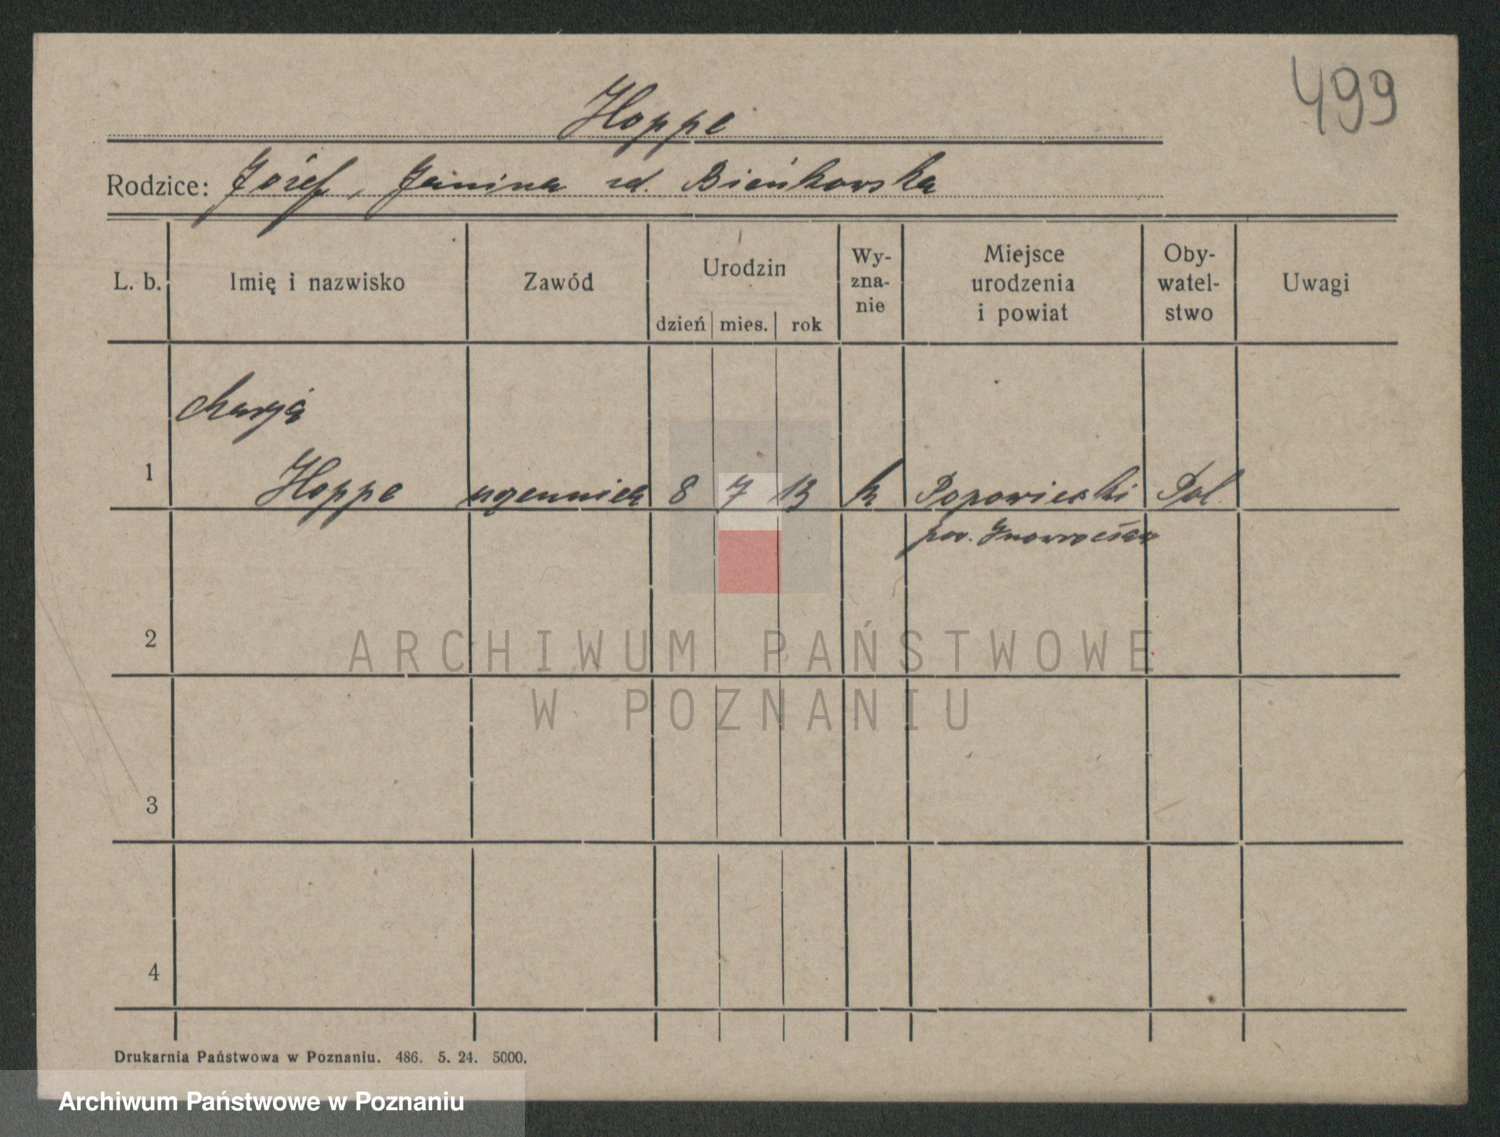 499
Hoppe
Rodzice: Józef, Janina zd. Bieńkowska
L. b. Imię i nazwisko Zawód Urodzin Wy-zna-nie Miejsce urodzenia i powiat Oby-watel-stwo Uwagi
dzień mies. rok
Marja
1 Hoppe 8 7 13 k Pol.
pow.
2
ARCHIWUM PAŃSTWOWE
W POZNANIU
3
4
Drukarnia Państwowa w Poznaniu. 486. 5. 24. 5000.
Archiwum Państwowe w Poznaniu